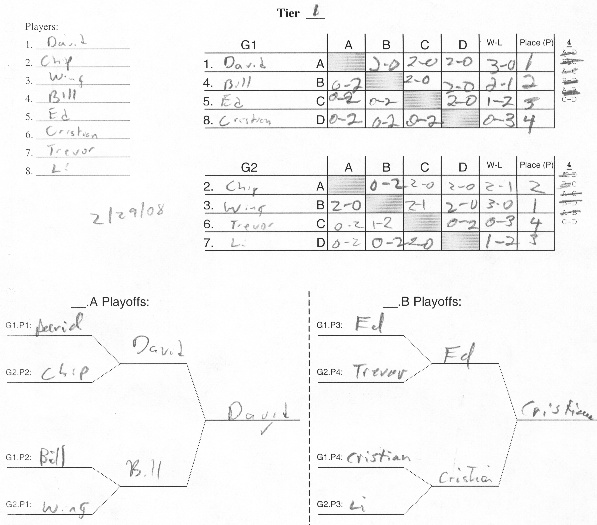 Tier 1
Players:
1. David
2. Chip
3. Wing
4. Bill
5. Ed
6. Cristian
7. Trevor
8. Li
2/29/08
G1 A B C D W-L Place (P) 4
1. David A 2-0 2-0 2-0 3-0 1
4. Bill B 0-2 2-0 2-0 2-1 2
5. Ed C 0-2 0-2 2-0 1-2 3
8. Cristian D 0-2 0-2 0-2 0-3 4
G2 A B C D W-L Place (P) 4
2. Chip A 0-2 2-0 2-0 2-1 2
3. Wing B 2-0 2-1 2-0 3-0 1
6. Trevor C 0-2 1-2 0-2 0-3 4
7. Li D 0-2 0-2 2-0 1-2 3
__.A Playoffs:
G1.P1: David
David
G2.P2: Chip
David
G1.P2: Bill
Bill
G2.P1: Wing
__.B Playoffs:
G1.P3: Ed
Ed
G2.P4: Trevor
Cristian
G1.P4: Cristian
Cristian
G2.P3: Li